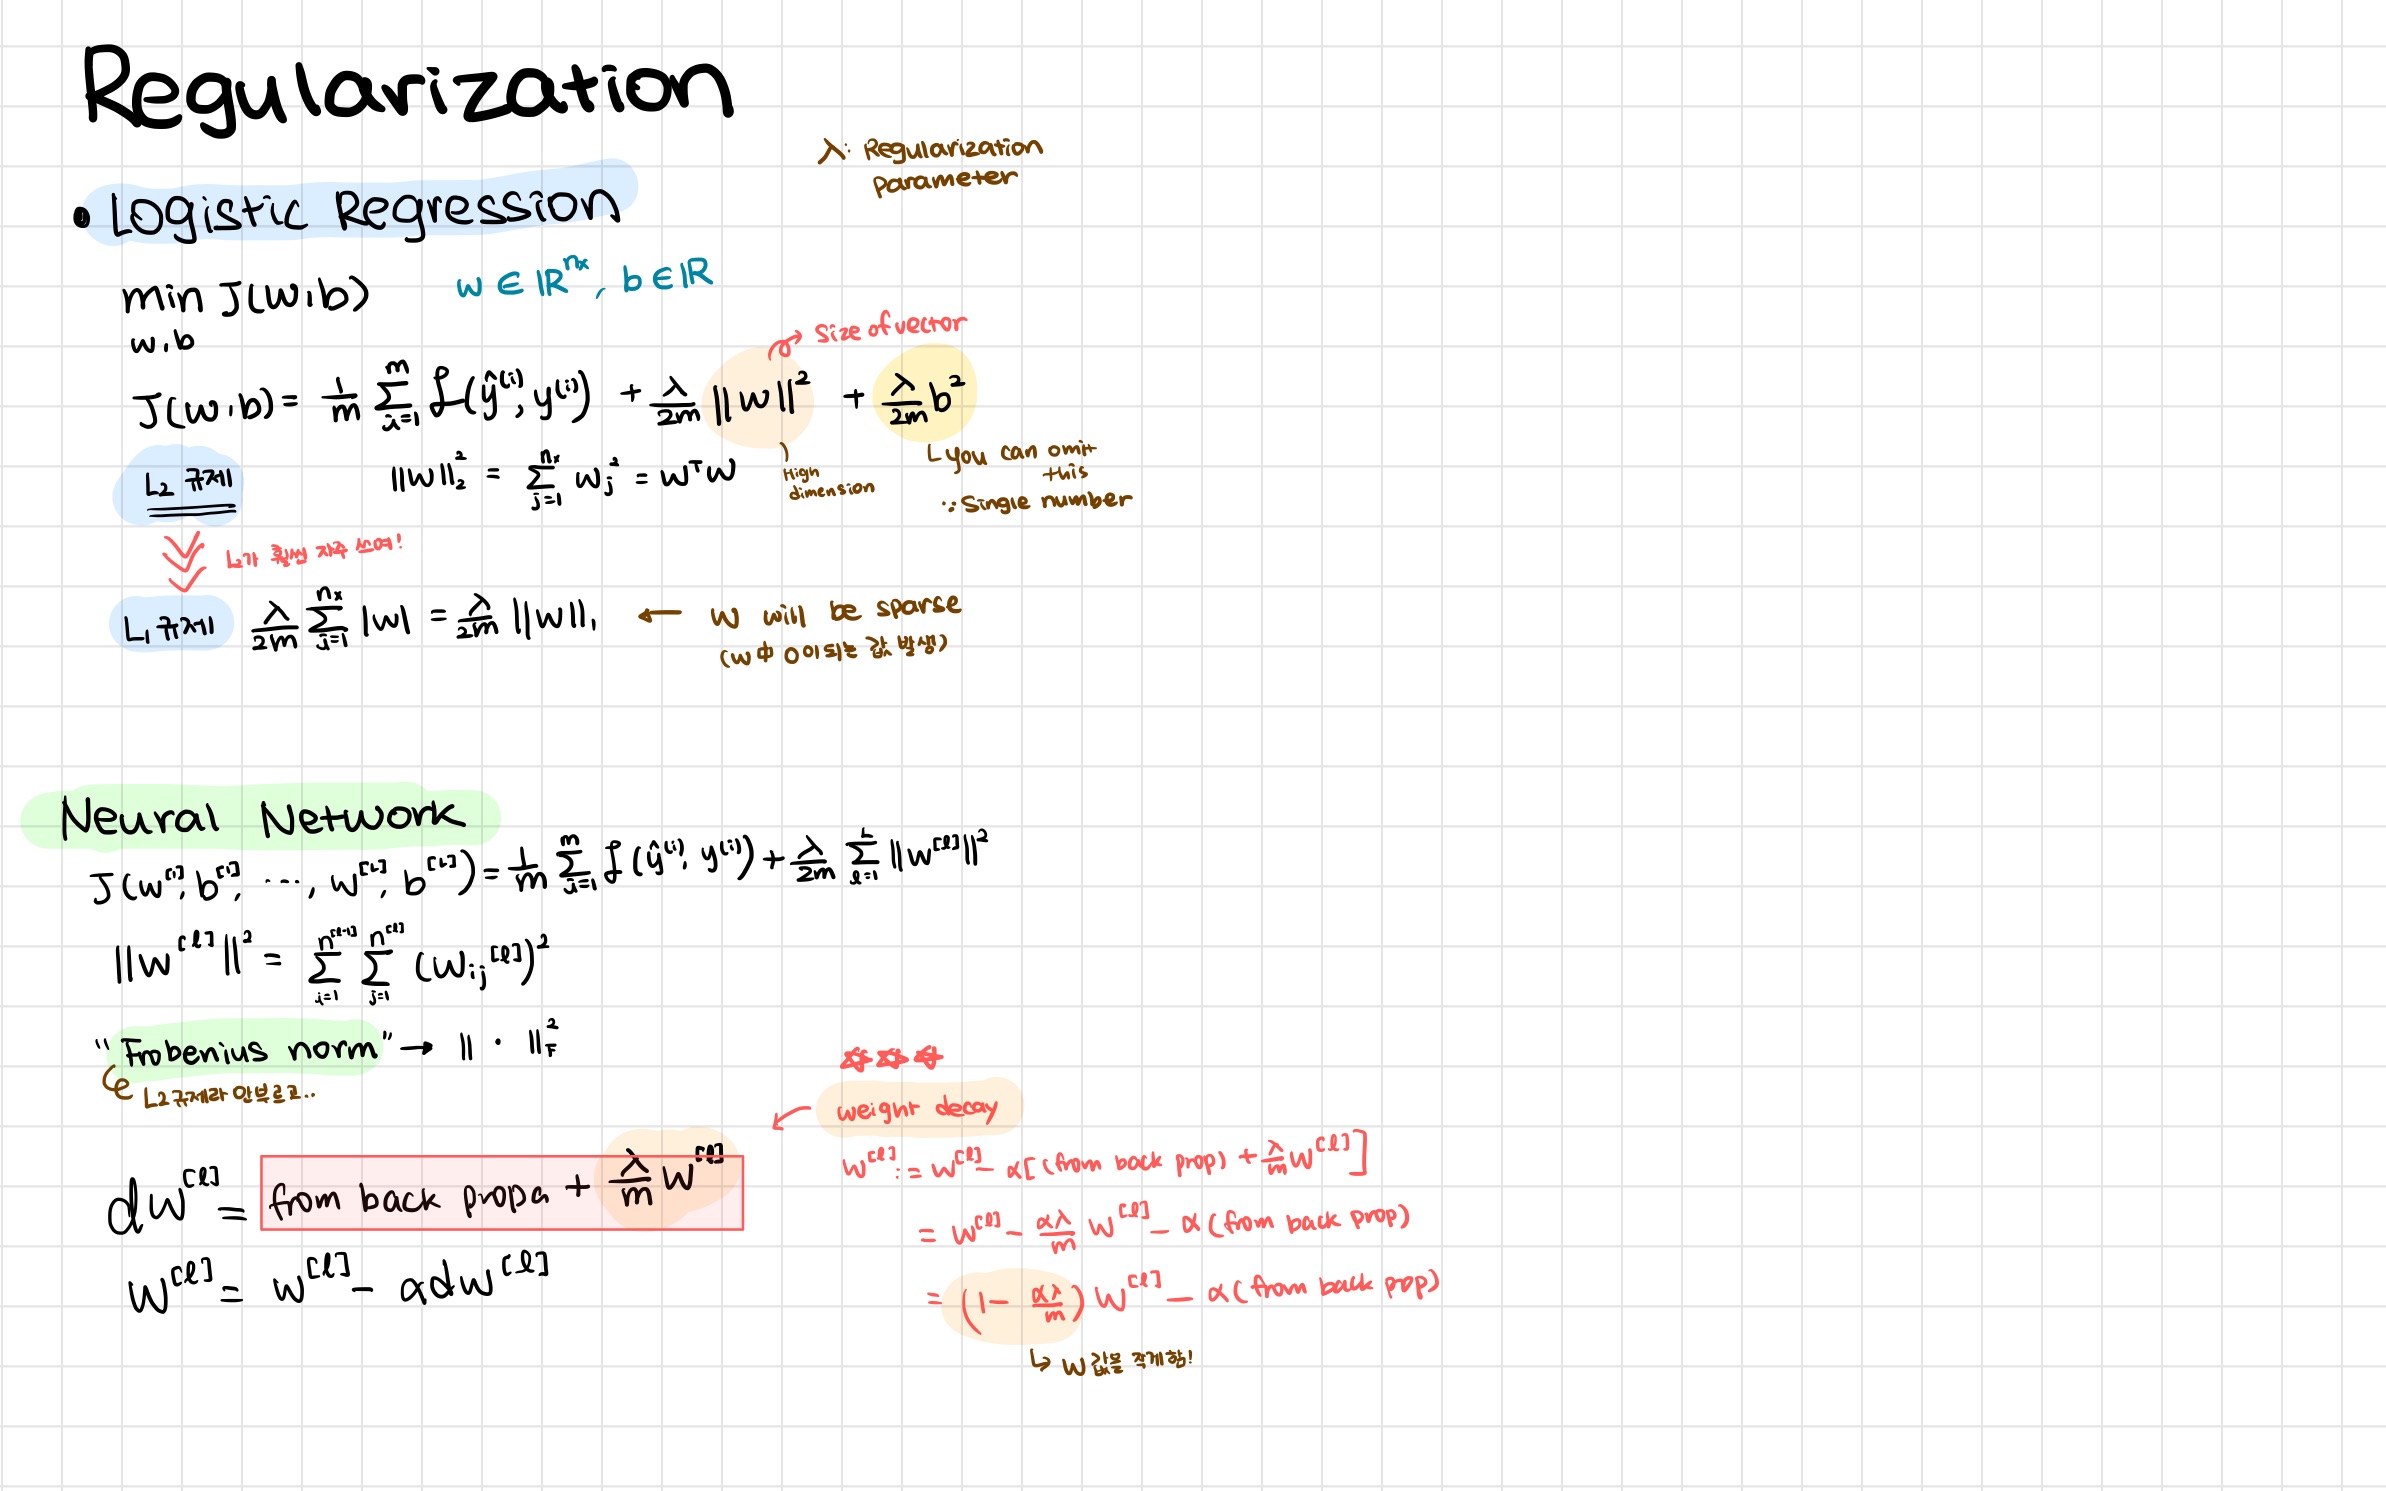 Regularization
λ: Regularization
parameter
• Logistic Regression
min J(w,b)
w,b
w ∈ ℝ^{n_x}, b ∈ ℝ
size of vector
J(w,b) = 1/m Σ_{i=1}^{m} ℒ(ŷ^{(i)}, y^{(i)}) + λ/2m ||w||² + λ/2m b²
L2 규제
||w||₂² = Σ_{j=1}^{n_x} w_j² = wᵀw
High
dimension
you can omit
this
∵ single number
L2가 훨씬 자주 쓰여!
L1 규제 λ/2m Σ_{j=1}^{n_x} |w| = λ/2m ||w||₁ ← w will be sparse
(w 中 0이 되는 값 발생)
Neural Network
J(w^{[1]}, b^{[1]}, ..., w^{[L]}, b^{[L]}) = 1/m Σ_{i=1}^{m} ℒ(ŷ^{(i)}, y^{(i)}) + λ/2m Σ_{l=1}^{L} ||w^{[l]}||²
||w^{[l]}||² = Σ_{i=1}^{n^{[l-1]}} Σ_{j=1}^{n^{[l]}} (w_{ij}^{[l]})²
"Frobenius norm" → || · ||_F²
L2 규제라 안부르고..
dw^{[l]} = from back propa + λ/m w^{[l]}
w^{[l]} = w^{[l]} - αdw^{[l]}
☆☆☆
weight decay
w^{[l]} := w^{[l]} - α[(from back prop) + λ/m w^{[l]}]
= w^{[l]} - αλ/m w^{[l]} - α(from back prop)
= (1 - αλ/m) w^{[l]} - α(from back pop)
↳ w 값을 작게함!